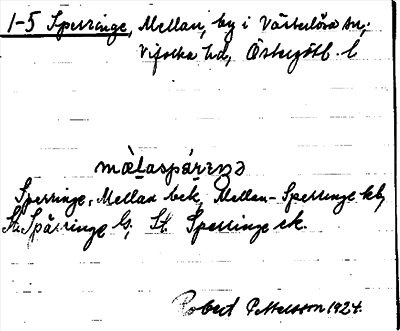 1-5 Sperringe, Mellan, by i Västerlösa sn,
Vifolka hd, Östergötl. l
mèlaspǽriŋə
Sperringe, Mellan bek, Mellan-Sperringe kb,
St. Spärringe ls, St. Sperringe ek.
Robert Pettersson 1924.